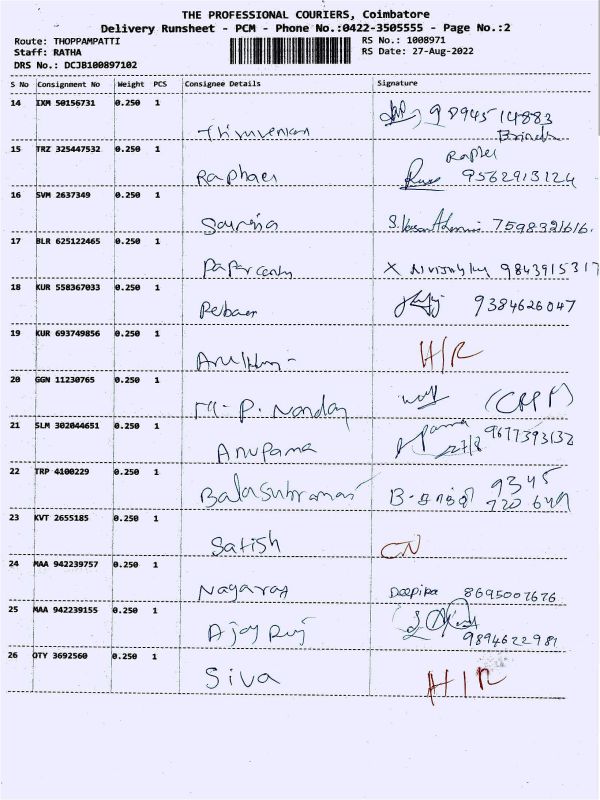 THE PROFESSIONAL COURIERS, Coimbatore
Delivery Runsheet - PCM - Phone No.:0422-3505555 - Page No.:2
Route: THOPPAMPATTI
Staff: RATHA
DRS No.: DCJB100897102
RS No.: 1008971
RS Date: 27-Aug-2022
S No Consignment No Weight PCS Consignee Details Signature
14 IXM 50156731 0.250 1 9894514883
15 TRZ 325447532 0.250 1 Raphael 9562913124
16 SVM 2637349 0.250 1 7598321616.
17 BLR 625122465 0.250 1 Paper X 9843915317
18 KUR 558367033 0.250 1 9384626047
19 KUR 693749856 0.250 1 H/R
20 GGN 11230765 0.250 1 P. Nanday
21 SLM 302044651 0.250 1 Anupama 27/8 9677393132
22 TRP 4100229 0.250 1 9345
720 649
23 KVT 2655185 0.250 1 Satish CN
24 MAA 942239757 0.250 1 Nagaraj Deepika 8695007676
25 MAA 942239155 0.250 1 Ajay 9894622981
26 OTY 3692560 0.250 1 Siva H/R